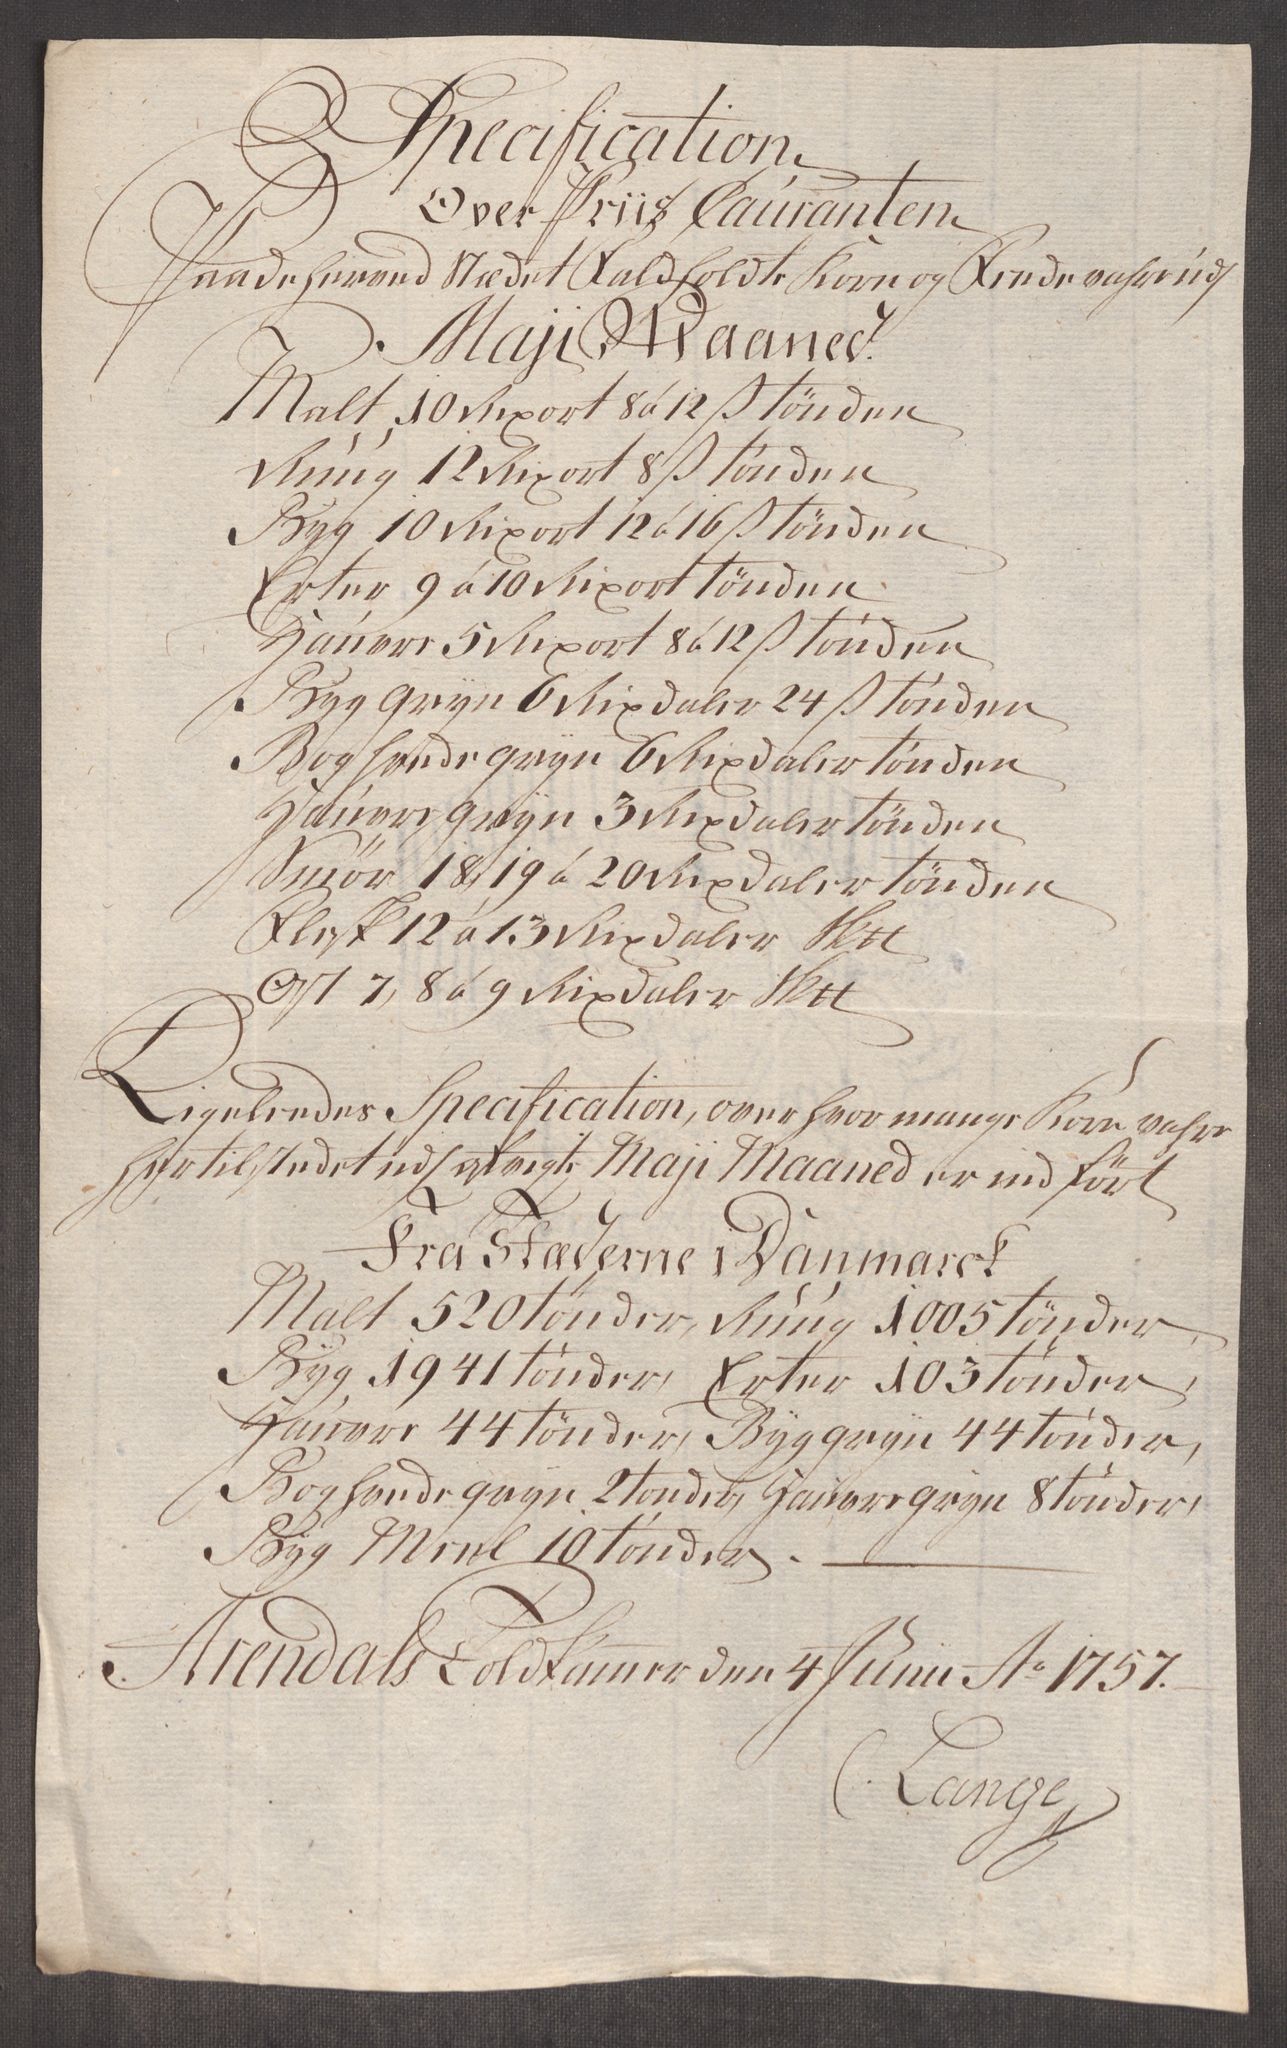 Specification
Over Priis Cauranten
Paa de herved Stædet Faldholdte Korn og Feede vahre udj
Maji Maaned.
Malt 10 Rixort 8 á 12 ß tönden
Rúúg 12 Rixort 8 ß tönden
Byg 10 Rixort 12 á 16 ß tönden
Erter 9 á 10 Rixort tönden
Haúvre 5 Rixort 8 á 12 ß tönden
Byg gryn 6 Rixdaler 24 ß tönden
Boghvede gryn 6 Rixdaler tönden
Haúvre gryn 3 Rixdaler tönden
Smör 18, 19 á 20 Rixdaler tönden
Flesk 12 á 13 Rixdaler
Ost 7, 8 á 9 Rixdaler
Ligeleedes Specification, over hvor mange Korn vahre
her til stedet udj afvigte Maji Maaned er ind fört
Fra Stæderne i Danmarck
Malt 520 tönder, Rúúg 1005 tönder,
Byg 1941 tönder, Erter 103 tönder,
Haúvre 44 tönder, Byg gryn 44 tönder,
Boghvede gryn 2 tönder, Haúvre gryn 8 tönder,
Byg Meel 10 tönder.
Arendals Toldkamer den 4 Junii Ao 1757.
C. Lange